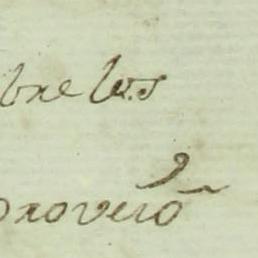 bre los
proveió